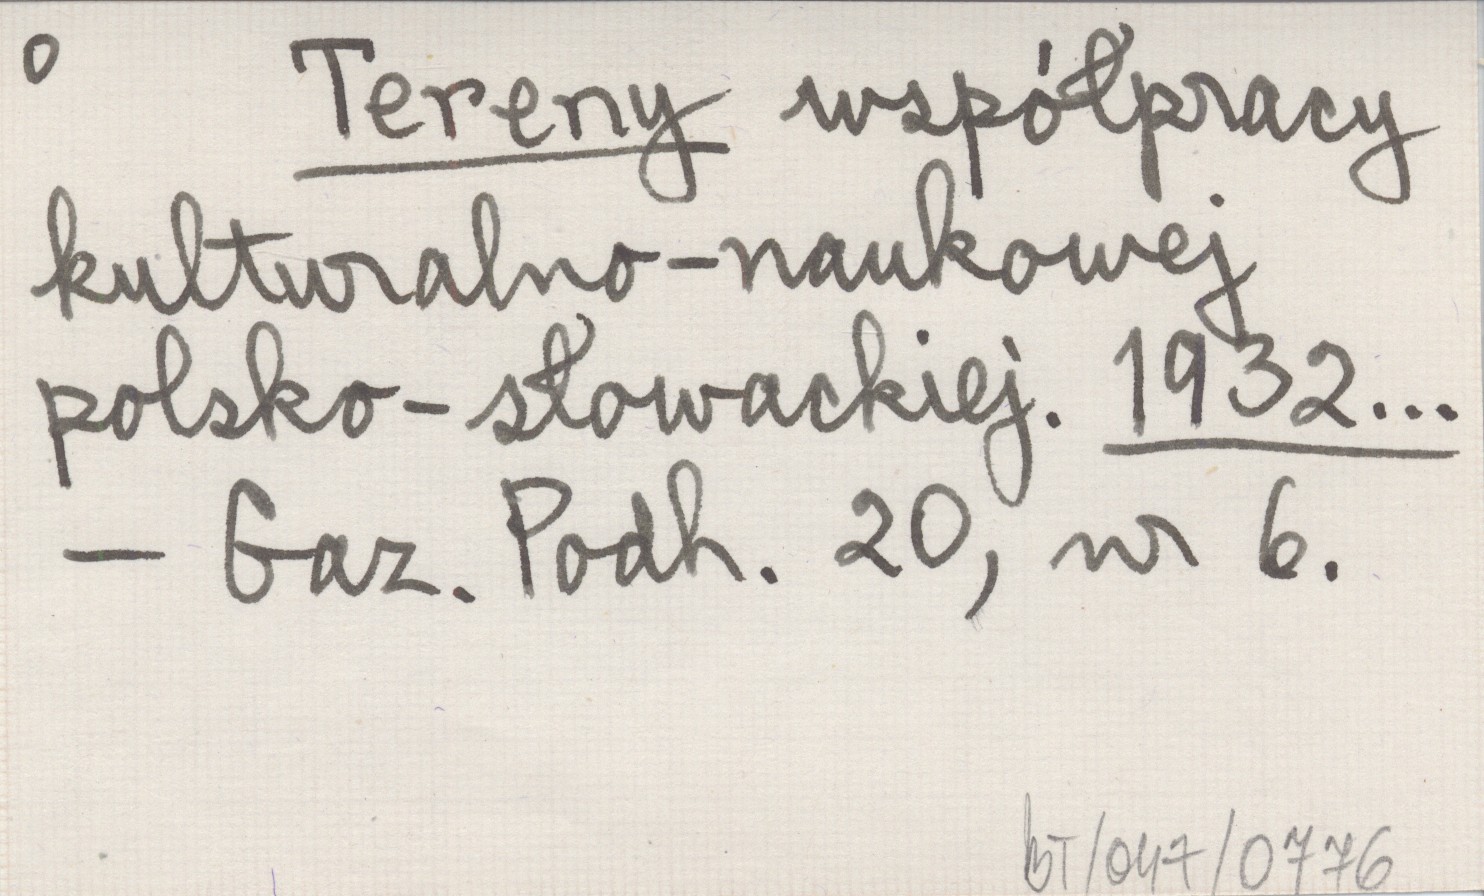 o Tereny współpracy
kulturalno-naukowej
polsko-słowackiej. 1932...
— Gaz. Podh. 20, nr 6.
BT/047/0776